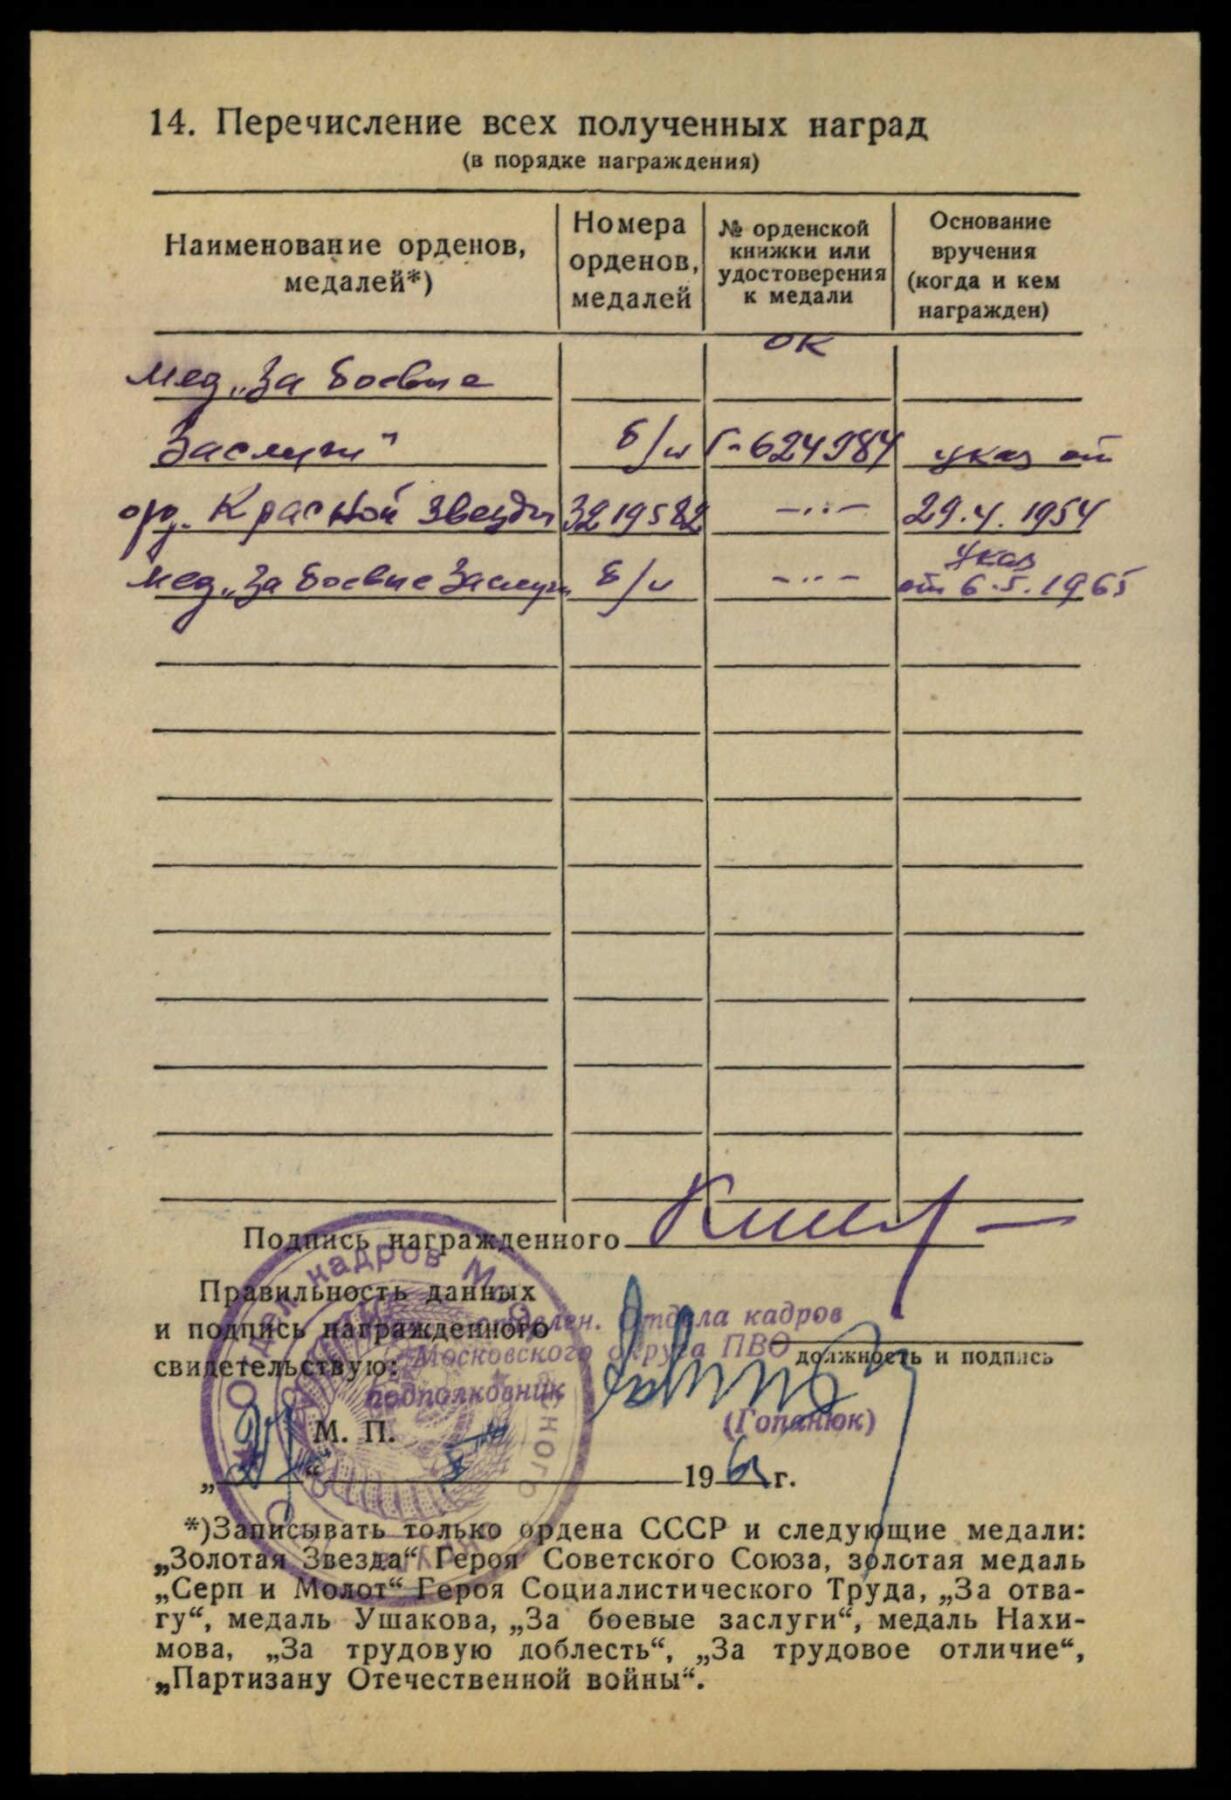 14. Перечисление всех полученных наград
(в порядке награждения)
Наименование орденов, медалей*)
Номера орденов, медалей
№ орденской книжки или удостоверения к медали
Основание вручения (когда и кем награжден)
ОК
мед „За боевые
Заслуги" б/н Г-624984 указ от
орд. Красной Звезды 3219582 —··— 29.4.1954
мед. „За боевые Заслуги б/н —··— Указ от 6.5.1965
Подпись награжденного
Правильность данных
и подпись награжденного
свидетельствую:
отделен. Отдела кадров
Московского округа ПВО
подполковник
(Гопанюк)
должность и подпись
М. П.
„ “ 196 г.
*)Записывать только ордена СССР и следующие медали:
„Золотая Звезда“ Героя Советского Союза, золотая медаль
„Серп и Молот“ Героя Социалистического Труда, „За отва-
гу“, медаль Ушакова, „За боевые заслуги“, медаль Нахи-
мова, „За трудовую доблесть“, „За трудовое отличие“,
„Партизану Отечественной войны“.